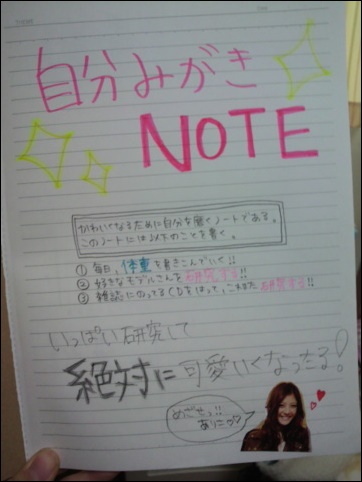 自分みがき
NOTE
かわいくなるために自分を磨くノートである。
このノートには以下のことを書く。
① 毎日、体重を書きこんでいく!!
② 好きなモデルさんを研究する!!
③ 雑誌にのってるCDをはって、これまた研究する!!
いっぱい研究して
絶対に可愛いくなったる!
めざせっ!!
ありこっ?